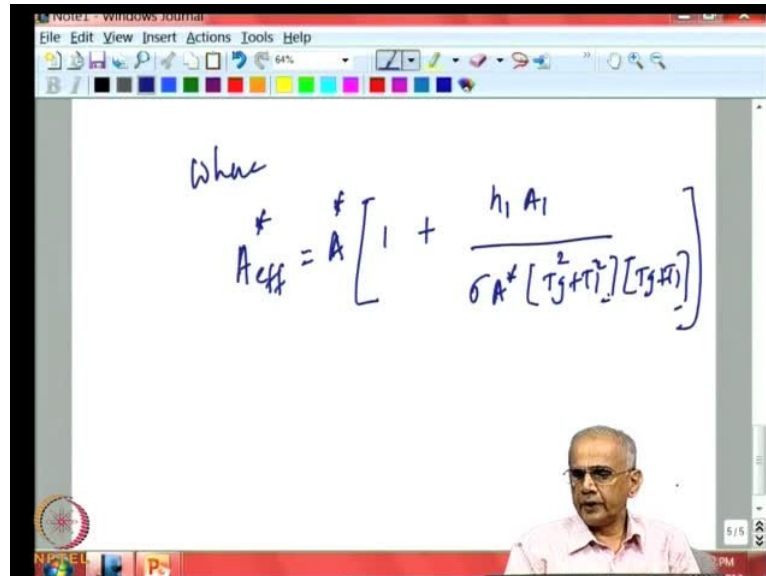 Note1 - Windows Journal
File Edit View Insert Actions Tools Help
64%
B I
Where
A*eff = A* [ 1 + h₁ A₁ / σ A* [Tg² + T₁²] [Tg + T₁] ]
5/5
NPTEL
PM